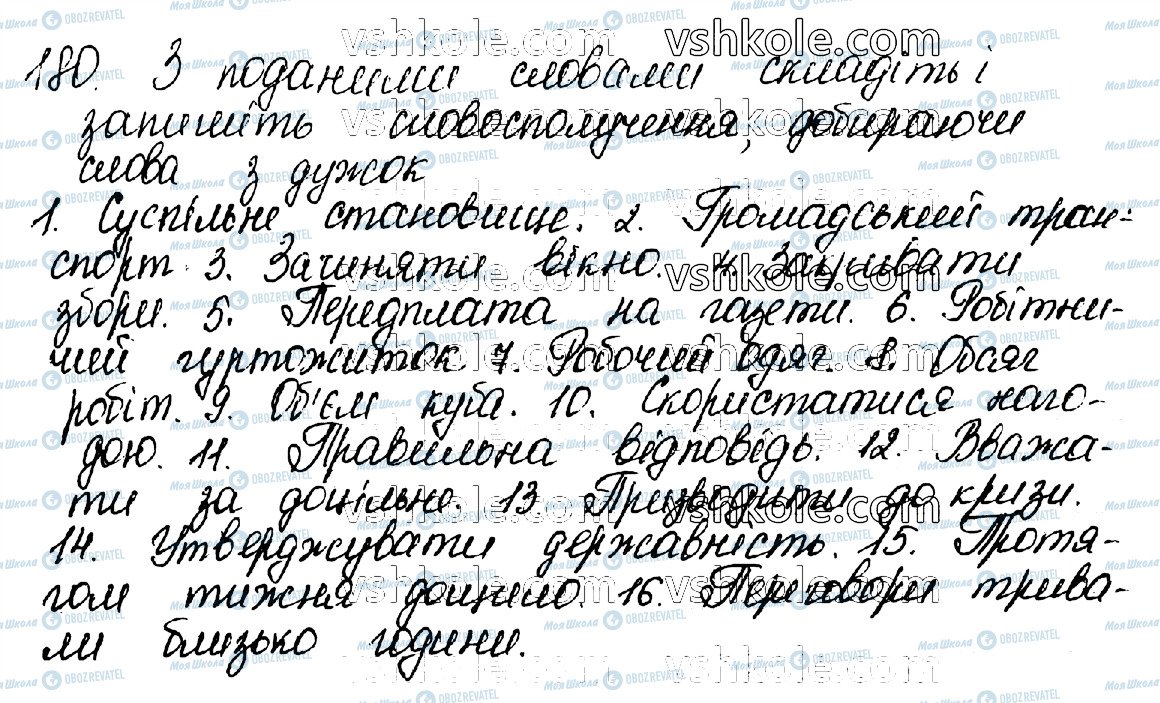 180. З поданими словами складіть і
запишіть словосполучення, добираючи
слова з дужок
1. Суспільне становище. 2. Громадський тран-
спорт 3. Зачиняти вікно. 4. Закривати
збори. 5. Передплата на газети. 6. Робітни-
чий гуртожиток 7. Робочий одяг 8. Обсяг
робіт. 9. Об'єм куба. 10. Скористатися наго-
дою. 11. Правильна відповідь. 12. Вважа-
ти за доцільне. 13. Призводити до кризи.
14. Утверджувати державність. 15. Протя-
гом тижня дощило. 16. Переговори трива-
ли близько години.